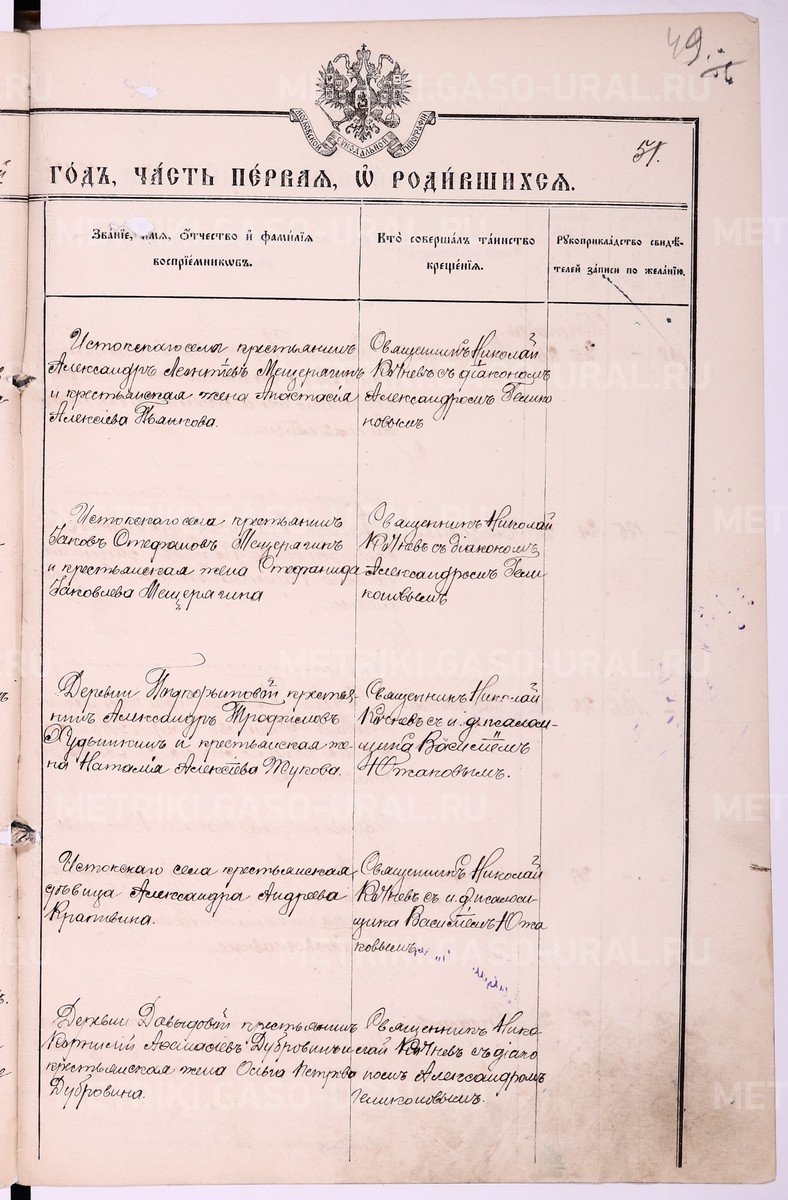 49.
51.
МОСКОВСКОЙ СѴНОДАЛЬНОЙ ТИПОГРАФІИ
ГО́ДЪ, ЧА́СТЬ ПЕ́РВАЯ, Ѡ РОДИ́ВШИХСЯ.
Зва́ніе, и́мя, ѻ҆́тчество и҆ фами́лія
воспрїе́мникѡвъ.
Кто̀ соверша́лъ та́инство
креще́нїя.
Рукоприкла́дство свидѣ́-
телей за́писи по жела́нїю.
Истокскаго села крестьянинъ
Александръ Леонтіевъ Мещерягинъ
и крестьянская жена Анастасія
Алексіева Пьянкова.
Священникъ Николай
Кочневъ съ діакономъ
Александромъ Гелико
новымъ
Истокскаго села крестьянинъ
Іаковъ Стефановъ Мещерягинъ
и крестьянская жена Стефанида
Іаковлева Мещерягина
Священникъ Николай
Кочневъ съ діакономъ
Александромъ Гели
коновымъ
Деревни крестья
нинъ Александръ Трофимовъ
Худышкинъ и крестьянская же
на Наталія Алексіева Жукова.
Священникъ Николай
Кочневъ съ и. д. псалом-
щика Василіемъ
Южаковымъ.
Истокскаго села крестьянская
дѣвица Александра Андреева
Крапивина.
Священникъ Николай
Кочневъ съ и. д. псаломщи-
щика Василіемъ Южа
ковымъ
Деревни Давыдовой крестьянинъ
Корнилій Аѳанасіевъ Дубровинъ и
крестьянская жена Ольга Петрова
Дубровина.
Священникъ Нико
лай Кочневъ съ діако
номъ Александромъ
Геликоновымъ.
METRIKI.GASO-URAL.RU